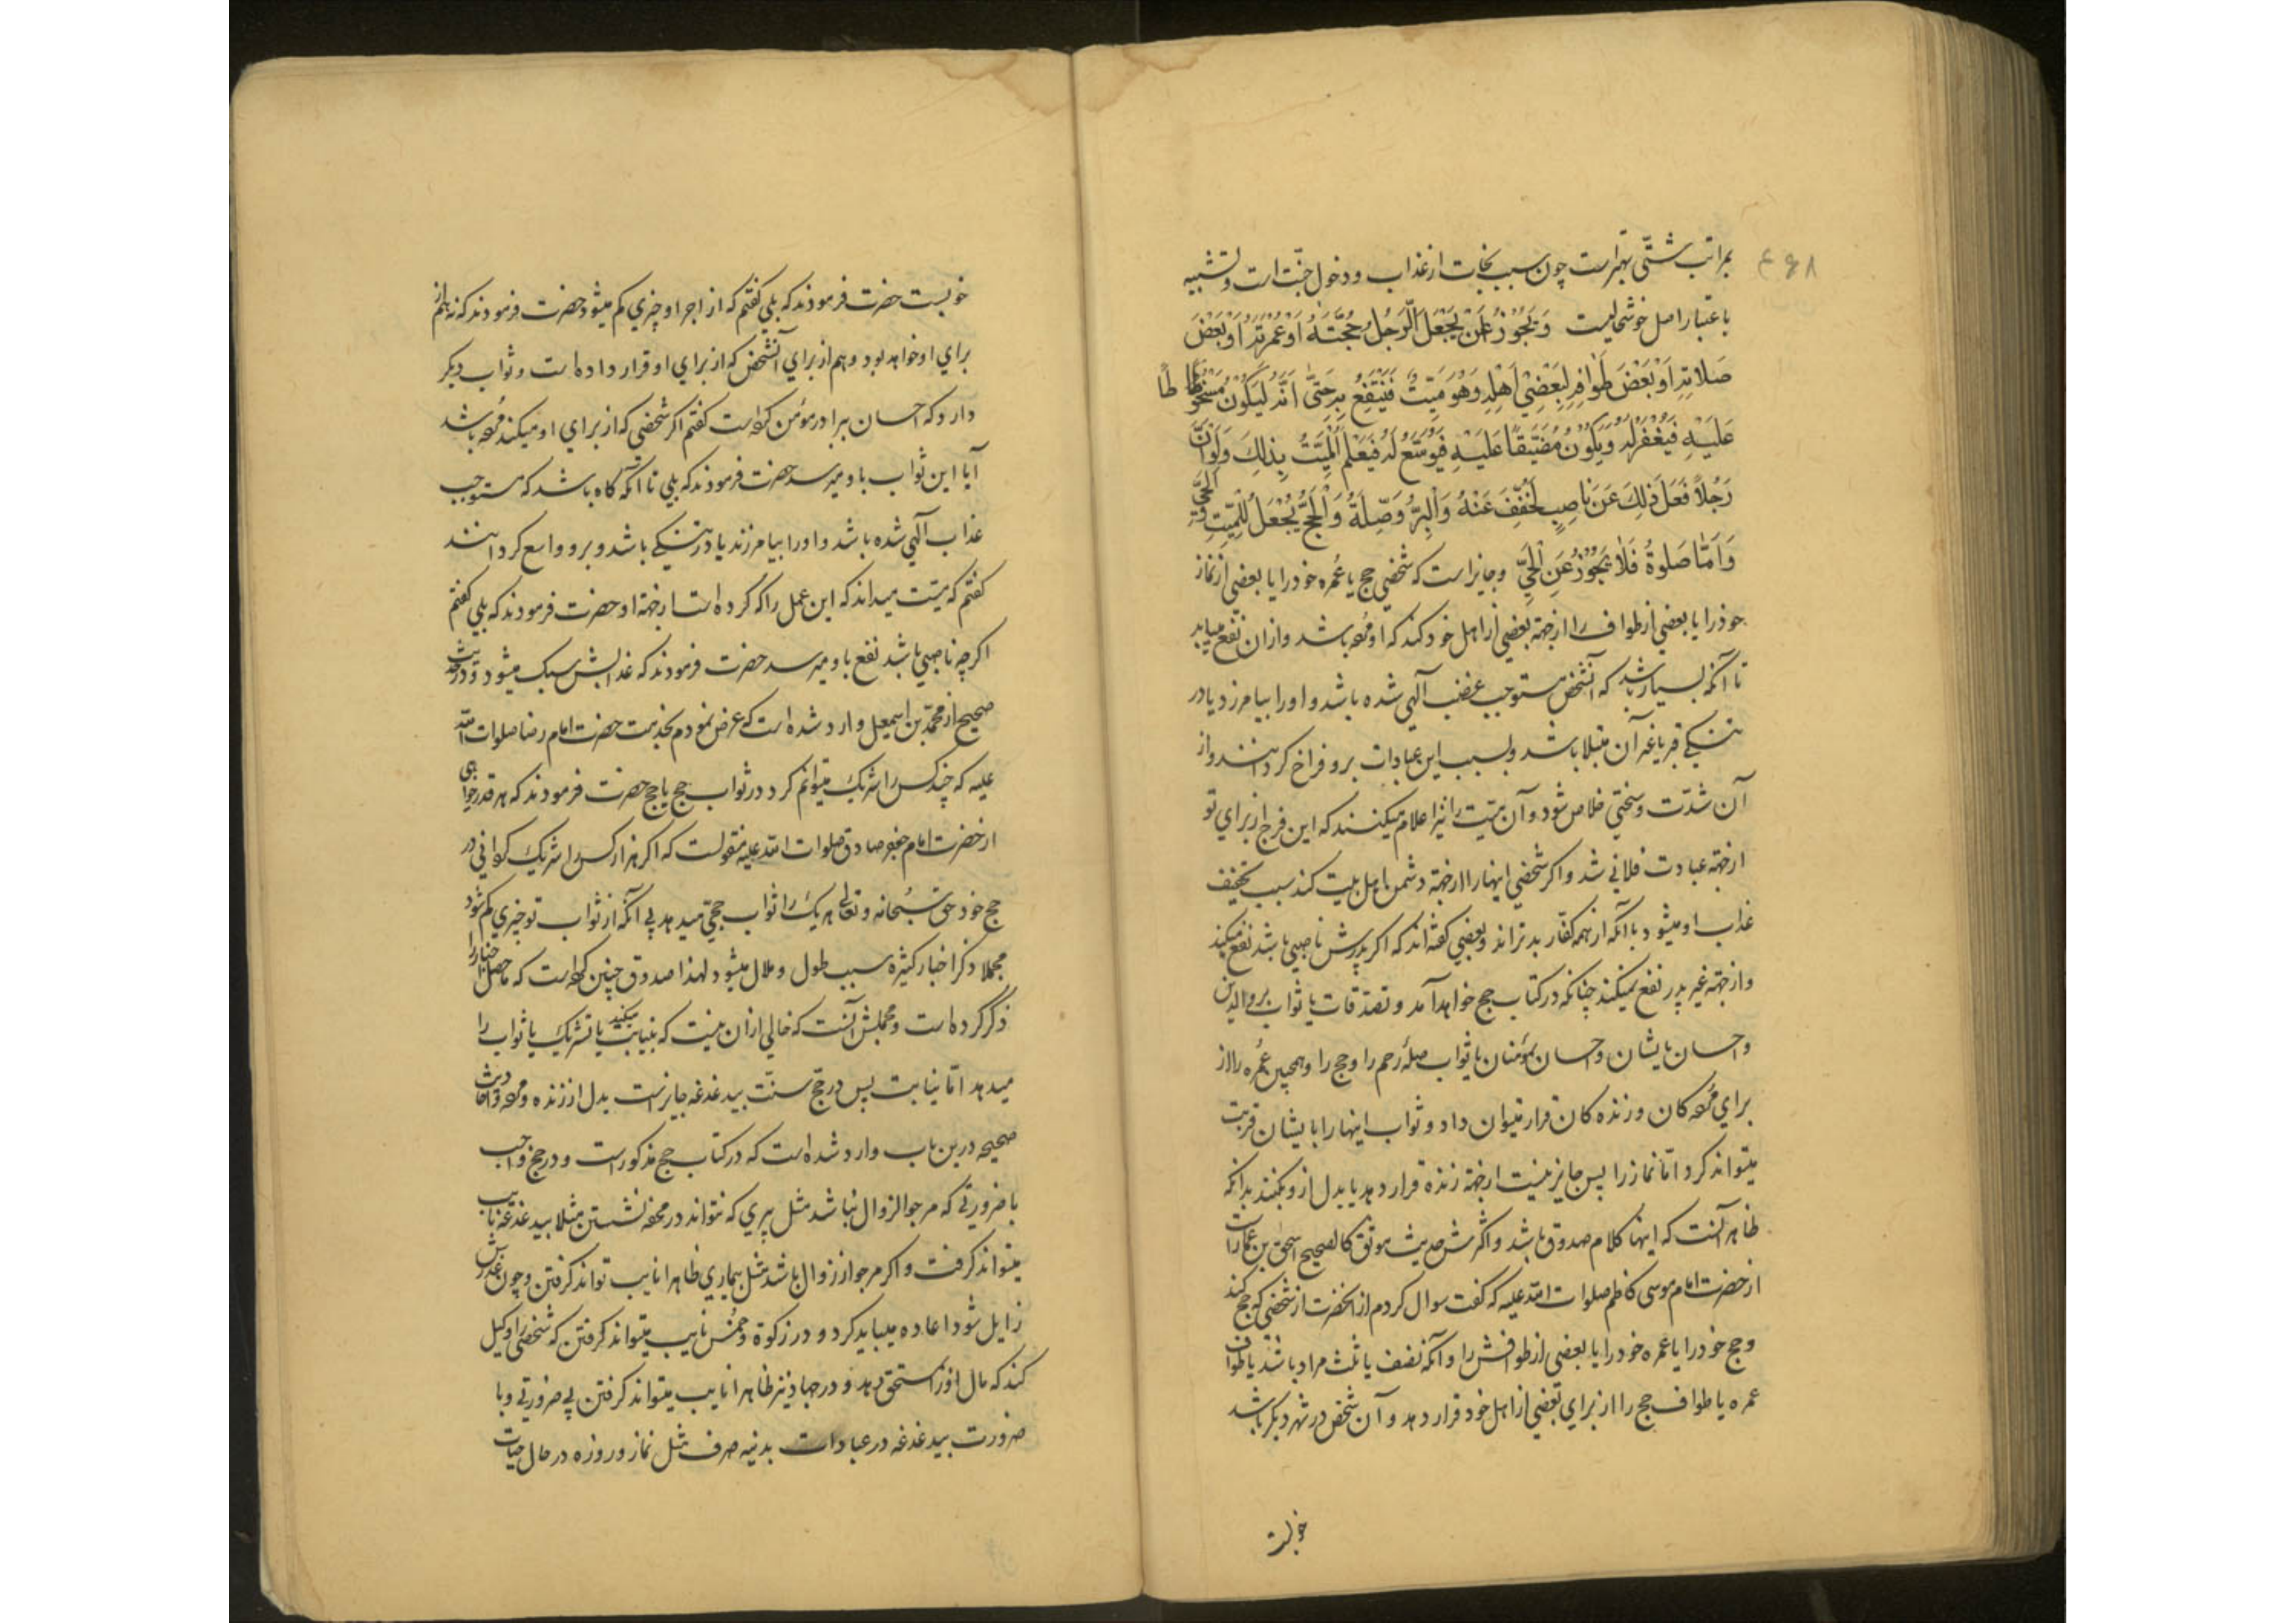 بمراتب شتّی بهتر است چون سبب نجات از عذاب و دخول جنّت است و تشبیه
باعتبار اصل خوشحالیست وَ یَجُوْزُ اَنْ یَجْعَلَ الرَّجُلُ حُجَّتَهُ اَوْ عُمْرَتَهُ اَوْ بَعْضَ
صَلَاتِهِ اَوْ بَعْضَ طَوَافِهِ لِبَعْضِ اَهْلِهِ وَهُوَ مَیِّتٌ فَیَنْتَفِعُ بِهِ حَتّٰی اَنَّهُ لَیَکُوْنُ مَسْخُوْطًا
عَلَیْهِ فَیُغْفَرُ لَهُ وَیَکُوْنُ مُضَیَّقًا عَلَیْهِ فَیُوَسَّعُ لَهُ فَیَعْلَمُ الْمَیِّتُ بِذٰلِكَ وَلَوْ اَنَّ
رَجُلًا فَعَلَ ذٰلِكَ عَنْ نَاصِبٍ لَخُفِّفَ عَنْهُ وَالْبِرُّ وَصِلَةُ وَالْحَجُّ یُجْعَلُ لِلْمَیِّتِ وَالْحَیِّ
وَاَمَّا صَلٰوةُ فَلَا یَجُوْزُ عَنِ الْحَیِّ و جایز است که شخصی حج یا عُمره خود را یا بعضی از نماز
خود را یا بعضی از طواف را از جهة بعضی از اهل خود کند که او مرده باشد و از ان نفع میابد
تا آنکه بسیار باشد که آنشخص مستوجب غضب آلهی شده باشد و او را بیامرزد یا در
تنکی قبر یا غیر آن مبتلا باشد و بسبب این عبادات برو فراخ کردانند و از
آن شدّت و سختی خلاص شود و آن میّت را نیز اعلام میکنند که این فرج از برای تو
از جهة عبادت فلانی شد و اکر شخصی اینها را از جهة دشمن اهل بیت کند سبب تخفیف
عذاب او میشود با آنکه از همه کفّار بدتر اند و بعضی کفته اند که اکر پدرش ناصبی باشد نفع میکند
و از جهة غیر پدر نفع نمیکند چنانکه در کتاب حج خواهد آمد و تصدّقات یا ثواب بر والدین
و احسان بایشان و احسان بمؤمنان یا ثواب صلۀ رحم را و حج را و همچنین عُمره را از
برای مرده کان و زنده کان قرار میتوان داد و ثواب اینها را بایشان قربت
میتواند کرد امّا نماز را پس جایز نیست از جهة زنده قرار دهد یا بدل ازو بکنند بدانکه
ظاهر آنست که اینها کلام صدوق باشد و اکثرش حدیث موثق کالصحیح اسحق بن عمار است
از حضرت امام موسی کاظم صلوات الله علیه که کفت سوال کردم از انحضرت از شخصی که حج کند
و حج خود را یا عمره خود را یا بعضی از طوافش را و آنکه نصف یا ثلث مراد باشد یا طواف
عمره یا طواف حج را از برای بعضی از اهل خود قرار دهد و آن شخص در شهر دیکر باشد
خوبست
خوبست حضرت فرمودند که بلی کفتم که از اجر او چیزی کم میشود حضرت فرمودند که نه هم از
برای او خواهد بود و هم از برای آنشخص که از برای او قرار داده است و ثواب دیکر
دارد که احسان ببرادر مؤمن کرده است کفتم اکر شخصی که از برای او میکند مرده باشد
آیا این ثواب باو میرسد حضرت فرمودند که بلی تا آنکه کاه باشد که مستوجب
عذاب آلهی شده باشد و او را بیامرزند یا در تنکی باشد و برو واسع کردانند
کفتم که میّت میداند که این عمل را که کرده است از جهة او حضرت فرمودند که بلی کفتم
اکر چه ناصبی باشد نفع باو میرسد حضرت فرمودند که عذابش سبک میشود و در حدیث
صحیح از محمّد بن اسمعیل وارد شده است که عرض نمودم بخدمت حضرت امام رضا صلوات الله
علیه که چند کس را شریک میتوانم کرد در ثواب حج یا حج حضرت فرمودند که هر قدر خواهی
از حضرت امام جعفر صادق صلوات الله علیه منقولست که اکر هزار کس را شریک کردانی در
حج خود حق سبحانه و تعالی هر یک را ثواب حجّی میدهد بی آنکه از ثواب تو چیزی کم شود
مجملا ذکر اخبار کثیره سبب طول و ملال میشود لهذا صدوق چنین کرده است که ماحصل اخبار را
ذکر کرده است و مجملش آنست که خالی از ان نیست که نیابت میکند یا تشریک یا ثواب را
میدهد امّا نیابت پس در حجّ سنّت بیدغدغه جایز است بدل از زنده و مرده و احادیث
صحیحه درین باب وارد شده است که در کتاب حج مذکور است و در حج واجب
با ضرورتی که مرجوّ الزوال نباشد مثل پیری که نتواند در محفه نشستن مثلا بیدغدغه نایب
میتواند کرفت و اکر مرجوّ از زوال باشد مثل بیماری ظاهرا نایب تواند کرفتن و چون عذرش
زایل شود اعاده میباید کرد و در زکوة و خمُس نایب میتواند کرفتن که شخصی را وکیل
کند که مال او را بمستحق دهد و در جهاد نیز ظاهرا نایب میتواند کرفتن بی ضرورتی و با
ضرورت بیدغدغه در عبادات بدنیه صرف مثل نماز و روزه در حال حیات